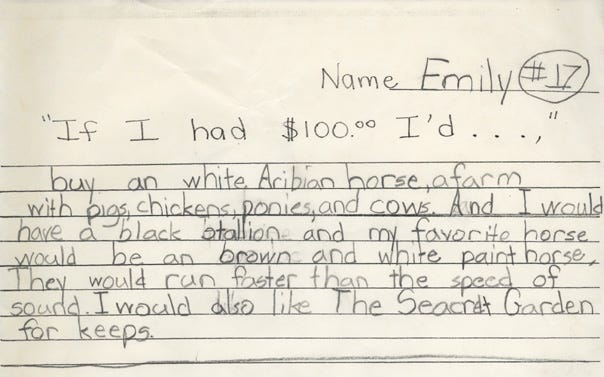 Name Emily #17
"If I had $100.00 I'd . . . ,"
buy an white Aribian horse, a farm
with pigs, chickens, ponies, and cows. And I would
have a black stallion and my favorite horse
would be an brown and white paint horse.
They would run faster than the speed of
sound. I would also like The Seacret Garden
for keeps.